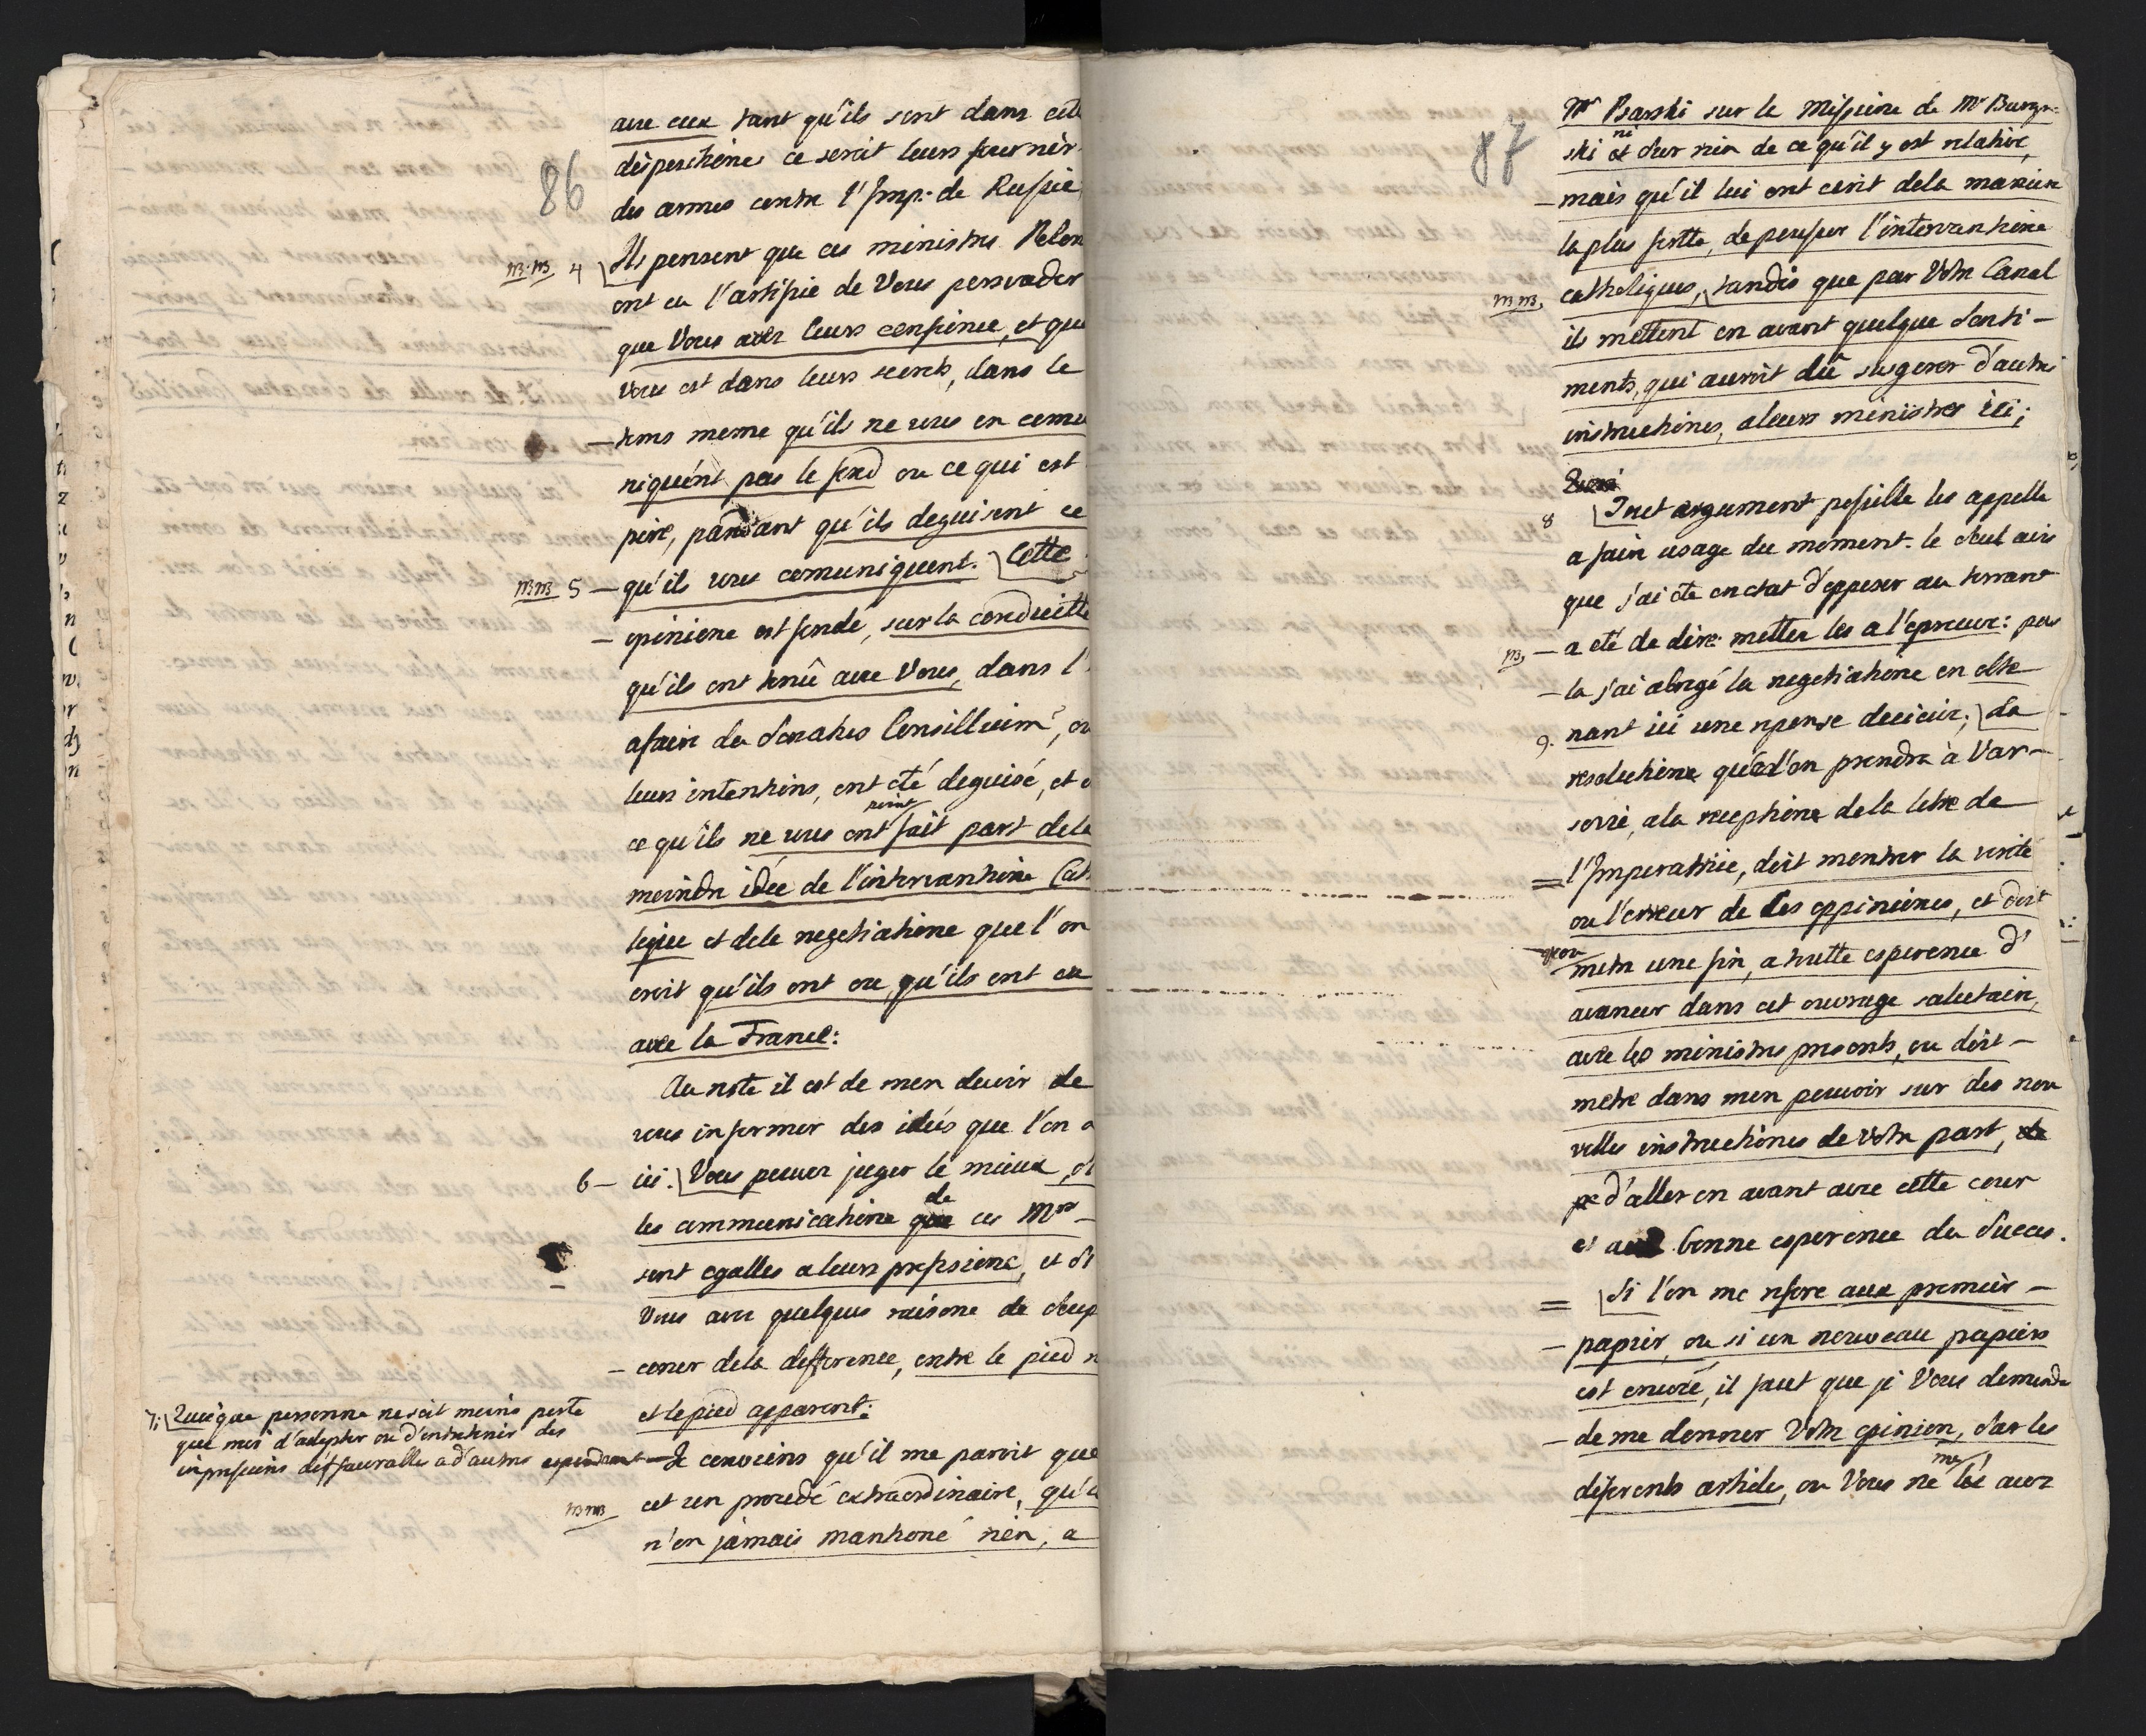 86
avec eux tant qu'ils sont dans cette
dispositiones ce seroit leurs fournir
des armes contre l'Imp: de Russie
NB.NB 4 Ils pensent que ces ministres Polon
ont eu l'artifice de Vous persuader
que Vous avez leurs confience, et que
vous est dans leurs secrets, dans le
— tems meme qu'ils ne vous en comu
niquént pas le fond ou ce qui est
pire, pandant qu'ils deguisent ce
NB NB 5 — qu'ils vous comuniquent. Cette
— opinione est fondé, sur la conduitte
qu'ils ont tenû avec Vous, dans l'
afaire du Senatus Consillium, ou
leurs intentions, ont eté deguisé, et
ce qu'ils ne vous ont point fait part dela
moindre idée de l'intervantione Cat
lique et dela negotiatione que l'on
croit qu'ils ont ou, qu'ils ont eu
avec la France:
Au reste il est de mon devoir de
vous informer des idées que l'on a
6 — ici. Vous pouvez juger le mieux, si
les communicatione de ces Mrs —
sont egalles a leurs professione, et si
Vous avez quelques raisone de soup
— coner dela defference, entre le pied
et le pied apparent:
7: Quoique personne ne soit moins porté
que moi d'adopter ou d'entretenir des
impressions deffavoralles a d'autres cependant — Je conviens qu'il me paroit que
NB NB est un procedé extraordinaire, qu'
n'on jámais mantioné rien, a
87
Mr Psarski sur la Missione de Mr Burzyn-
ski ni sur rien de ce qu'il y est relative,
— mais qu'il lui ont ecrit dela maniere
la plus fortte, de pousser l'intervantione
NB NB. catholiques, tandis que par Votre Canal
ils mettent en avant quelque senti —
ments, qui auroit dû sugerer d'autres
instructiones, a leurs ministres ici;
8 Tout argument possille les appelle
a faire usage du moment. le seul avis
que j'ai eté en etat d'opposer au torrant
NB, — a eté de dire: mettez les a l'epreuve: par
— la j'ai abregé la negotiatione en obte
9. nant ici une reponse decisive; La
resolutione que l'on prendra à Var —
sovie, a la receptione dela lettre de
= l'Imperatrice, doit montrer la verité
ou l'erreur de Ces oppiniones, et doit
metre une fin, a toutte esperence d'
avancer dans cet ouvrage salutaire,
avec les ministres presents, ou doit —
metre dans mon pouvoir sur des nou
velles instructiones de Votre part,
d'aller en avant avec cette cour
et bonne esperence du Succes.
= Si l'on me refere aux premier —
— papier, ou si un nouveau papiers
est envoié, il faut que je Vous demande
— de me donner Votre opinion, sur les
diferents article, ou Vous ne me avez